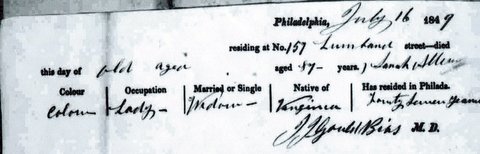 Philadelphia, July 16 1849
residing at No. 157 Lumbard street—died
this day of old age aged 87 - years, Sarah Allen
Colour Occupation Married or Single Native of Has resided in Philada.
Colour Lady - Widow - Virginia Fourty Seven Years
J J Gould Bias M. D.